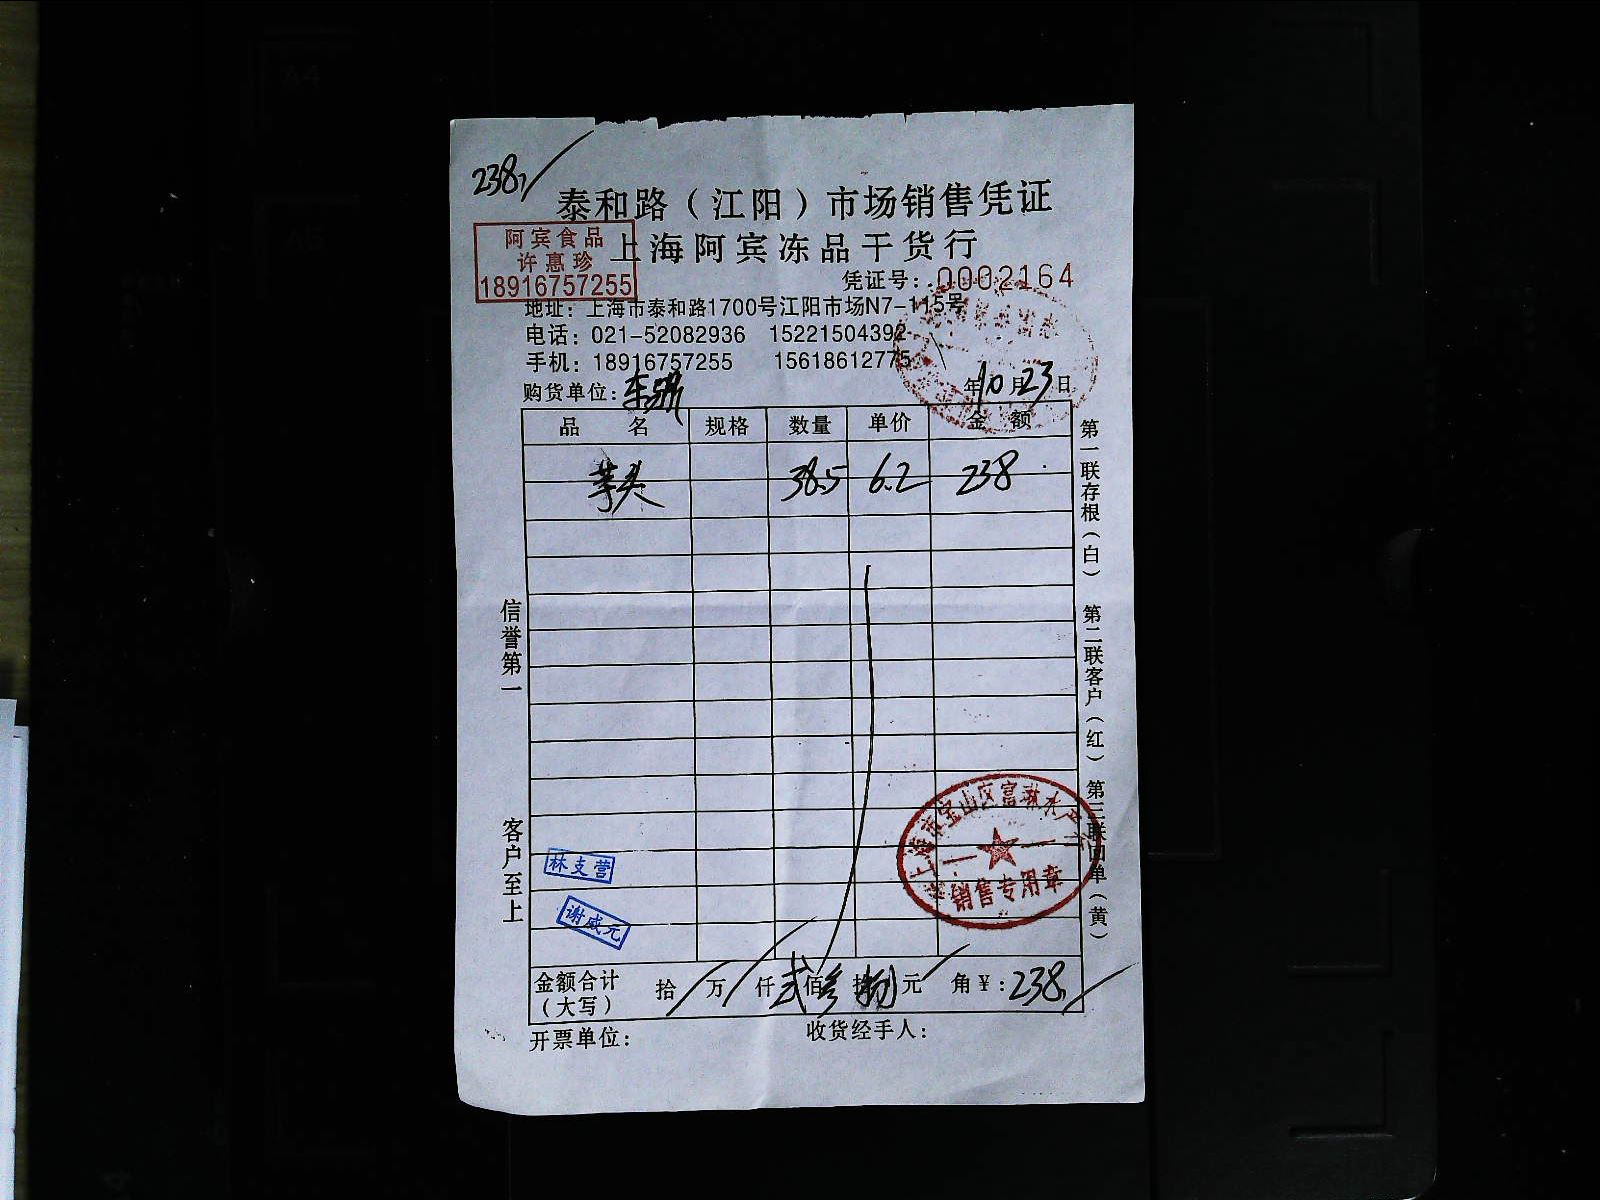 238,
泰和路（江阳）市场销售凭证
上海阿宾冻品干货行
阿宾食品
许惠珍
18916757255
凭证号：0002164
地址：上海市泰和路1700号江阳市场N7-115号
电话：021-52082936 15221504392
手机：18916757255 15618612775
购货单位：
年10月23日
品名 规格 数量 单价 金额
芋头 38.5 6.2 238
信誉第一
客户至上
第一联存根（白） 第二联客户（红） 第三联回单（黄）
上海市宝山区富琳水产
销售专用章
林支营
谢威元
金额合计（大写） 拾 万 仟 贰佰 叁拾 捌元 角 ¥：238,
开票单位： 收货经手人：